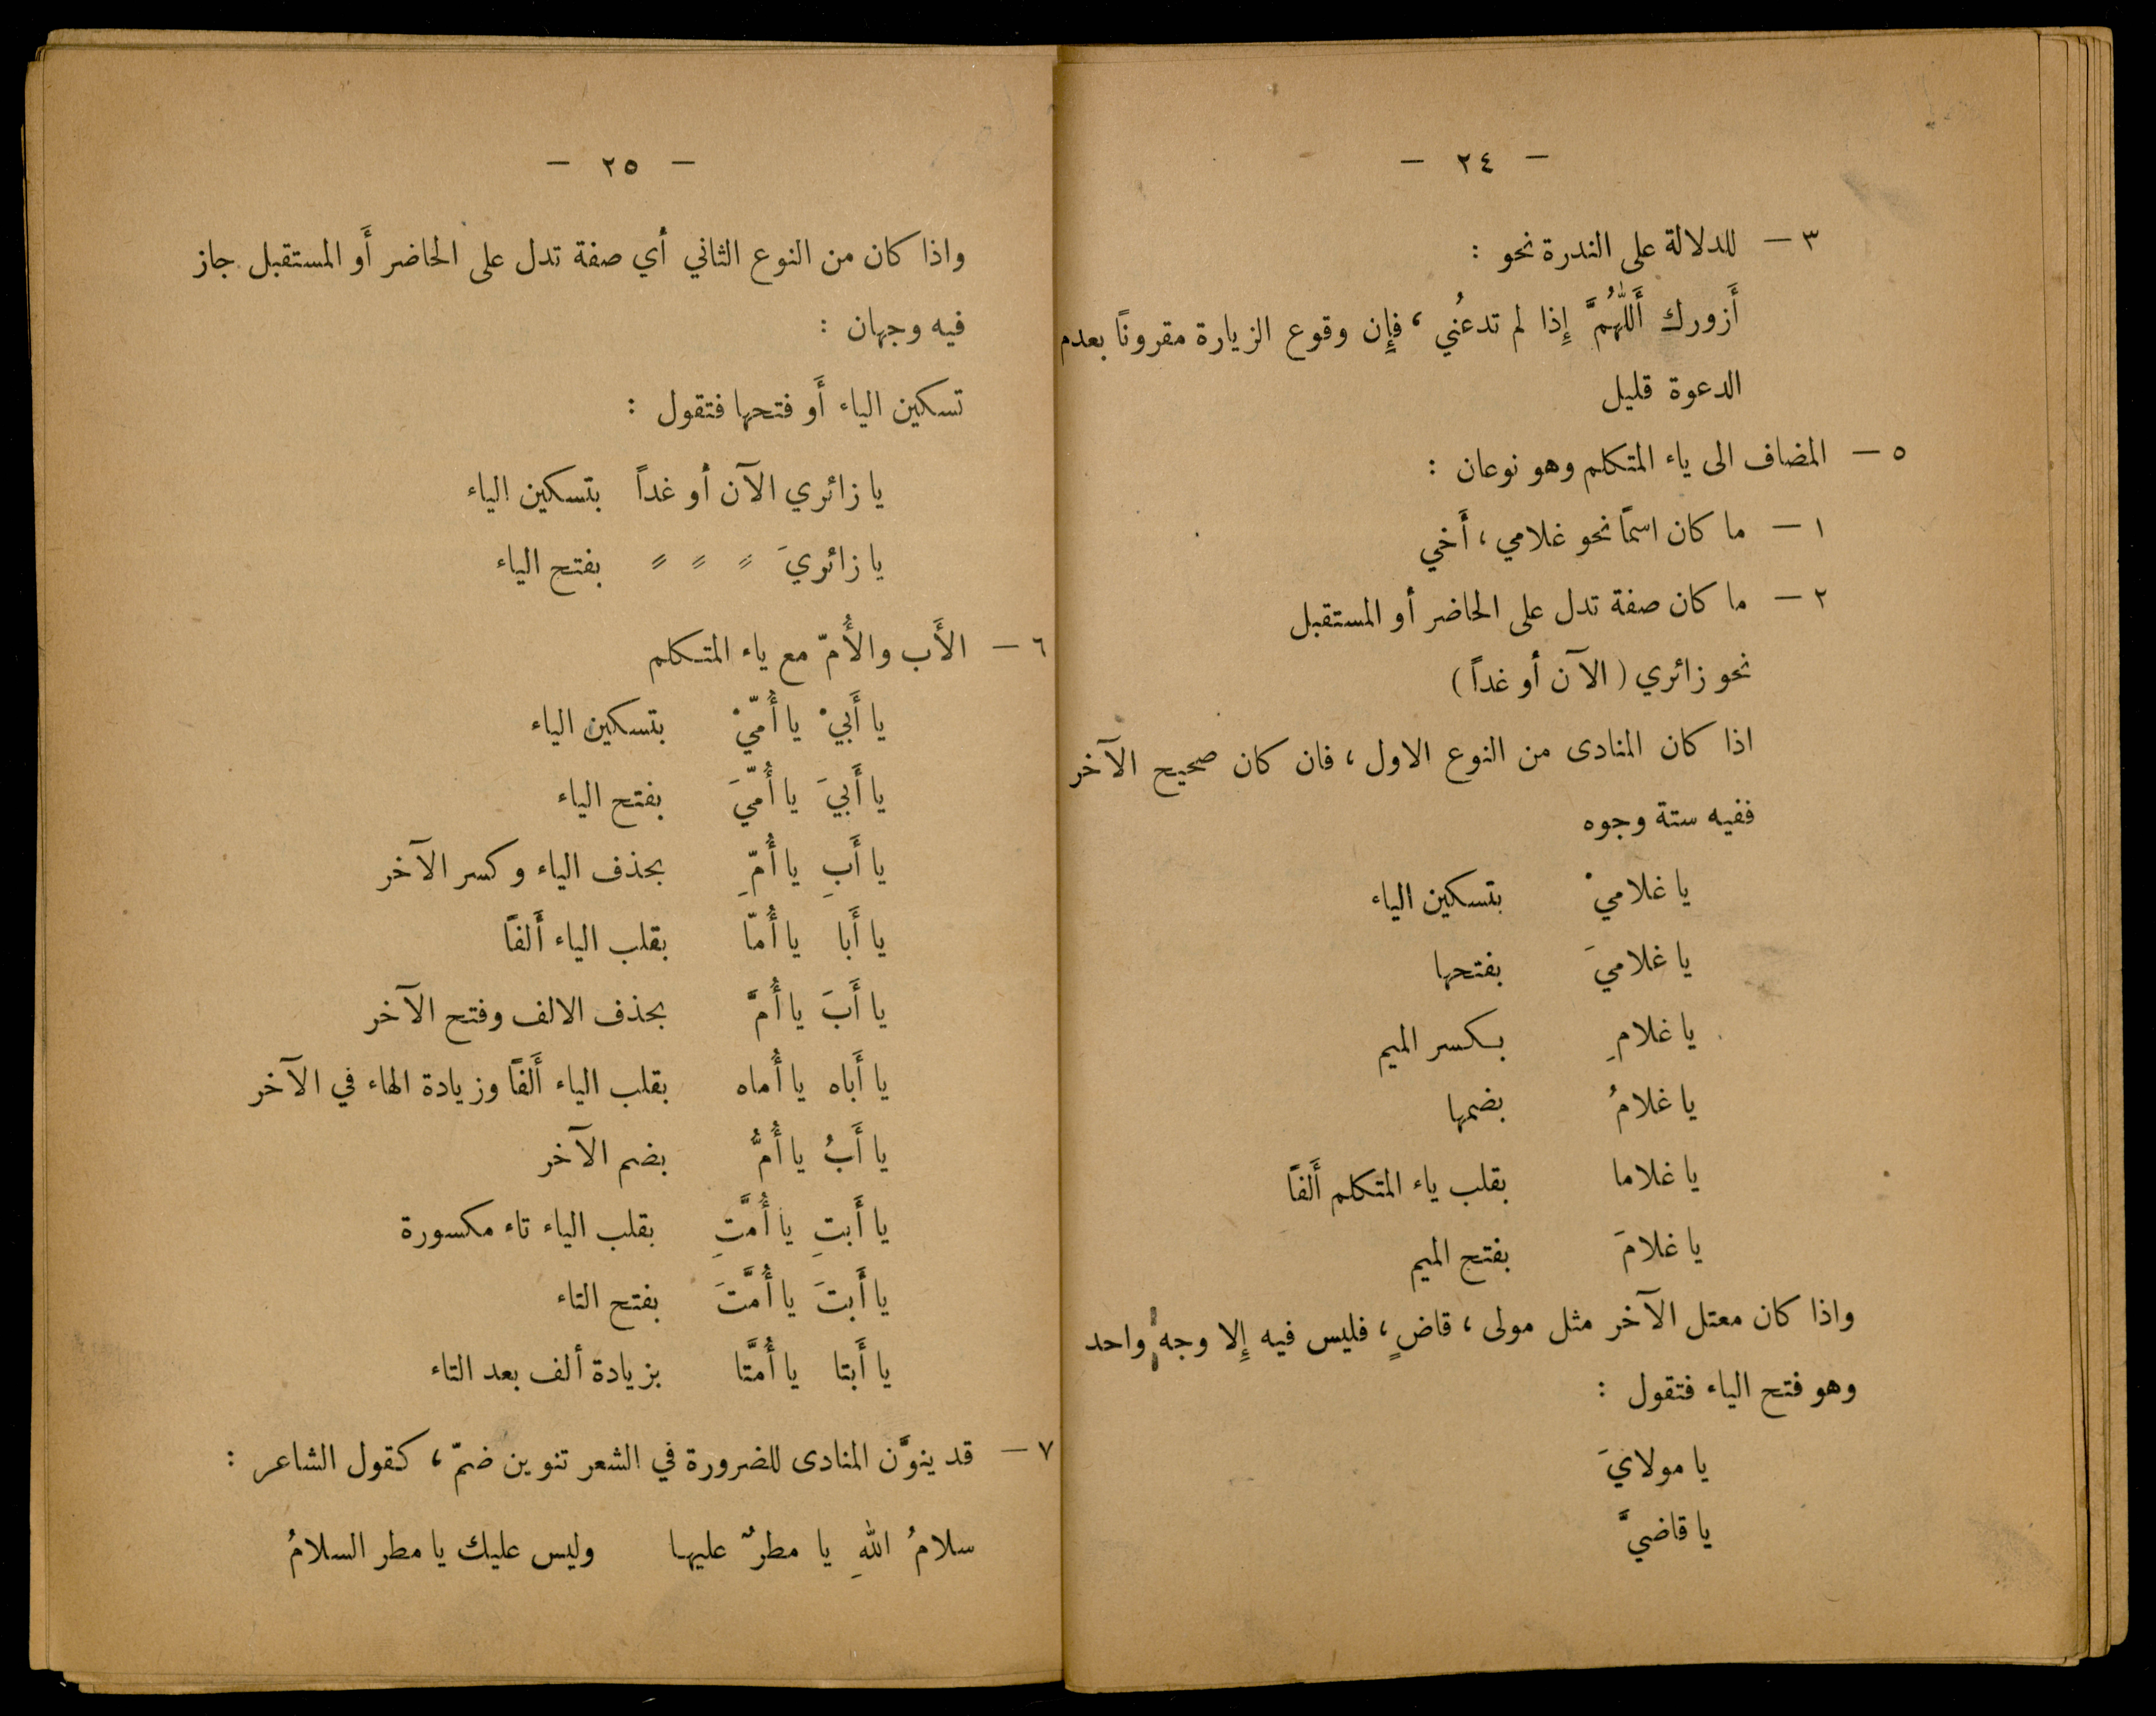 — ٢٤ —
٣ — للدلالة على الندرة نحو :
أَزورك أَللّٰهُمَّ إِذا لم تدعُني ، فإِن وقوع الزيارة مقرونًا بعدم
الدعوة قليل
٥ — المضاف الى ياء المتكلم وهو نوعان :
١ — ما كان اسمًا نحو غلامي ، أَخي
٢ — ما كان صفة تدل على الحاضر أو المستقبل
نحو زائري ( الآن أو غداً )
اذا كان المنادى من النوع الاول ، فان كان صحيح الآخر
ففيه ستة وجوه
يا غلاميْ بتسكين الياء
يا غلاميَ بفتحها
يا غلامِ بكسر الميم
يا غلامُ بضمها
يا غلاما بقلب ياء المتكلم أَلفاً
يا غلامَ بفتح الميم
واذا كان معتل الآخر مثل مولى ، قاضٍ ، فليس فيه إِلا وجه واحد
وهو فتح الياء فتقول :
يا مولايَ
يا قاضيَّ
— ٢٥ —
واذا كان من النوع الثاني أي صفة تدل على الحاضر أَو المستقبل جاز
فيه وجهان :
تسكين الياء أَو فتحها فتقول :
يا زائري الآن أو غداً بتسكين الياء
يا زائريَ » » » بفتح الياء
٦ — الأَب والأُمّ مع ياء المتكلم
يا أَبيْ يا أُمّيْ بتسكين الياء
يا أَبيَ يا أُمّيَ بفتح الياء
يا أَبِ يا أُمّ‍ِ بحذف الياء وكسر الآخر
يا أَبا يا أُمّا بقلب الياء أَلفاً
يا أَبَ يا أُمَّ بحذف الالف وفتح الآخر
يا أَباه يا أُماه بقلب الياء أَلفاً وزيادة الهاء في الآخر
يا أَبُ يا أُمُّ بضم الآخر
يا أَبتِ يا أُمَّتِ بقلب الياء تاء مكسورة
يا أَبتَ يا أُمَّتَ بفتح التاء
يا أَبتا يا أُمَّتا بزيادة ألف بعد التاء
٧ — قد ينوَّن المنادى للضرورة في الشعر تنوين ضمّ ، كقول الشاعر :
سلامُ اللهِ يا مطرٌ عليها وليس عليك يا مطر السلامُ